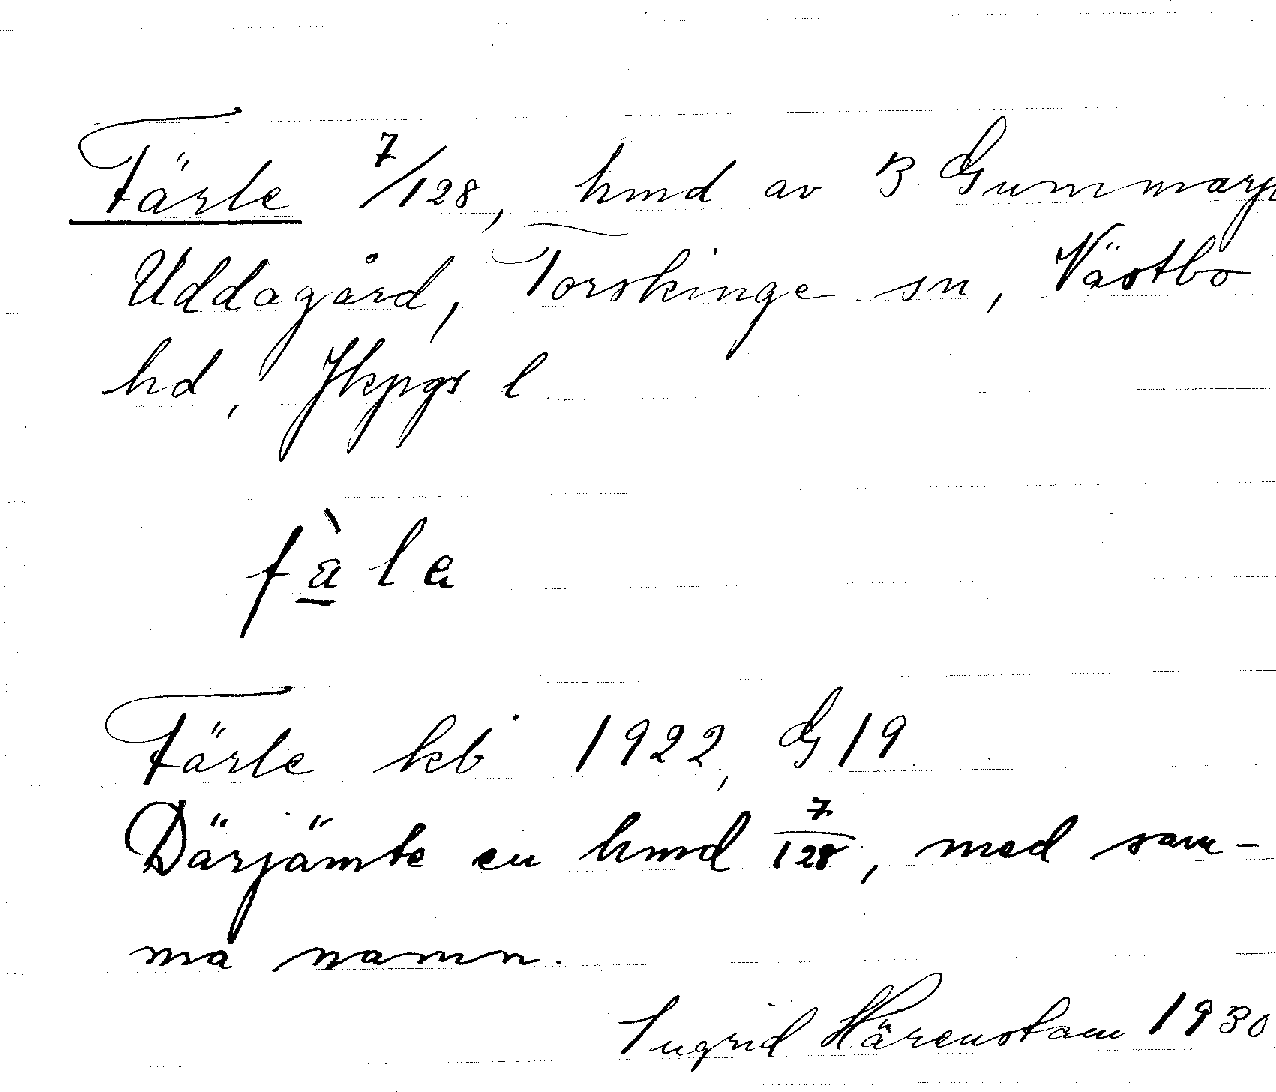 Färle 7/128, hmd av B Gummarp
Uddagård, Torskinge sn, Västbo
hd, Jkpgs l
fàle
Färle kb 1922, G 19
Därjämte en hmd 7/128, med sam-
ma namn.
Ingrid Härenstam 1930